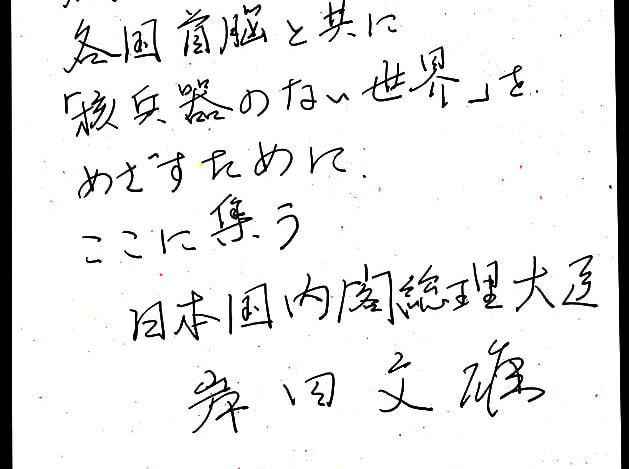 各国首脳と共に
「核兵器のない世界」を
めざすために
ここに集う
日本国内閣総理大臣
岸田文雄